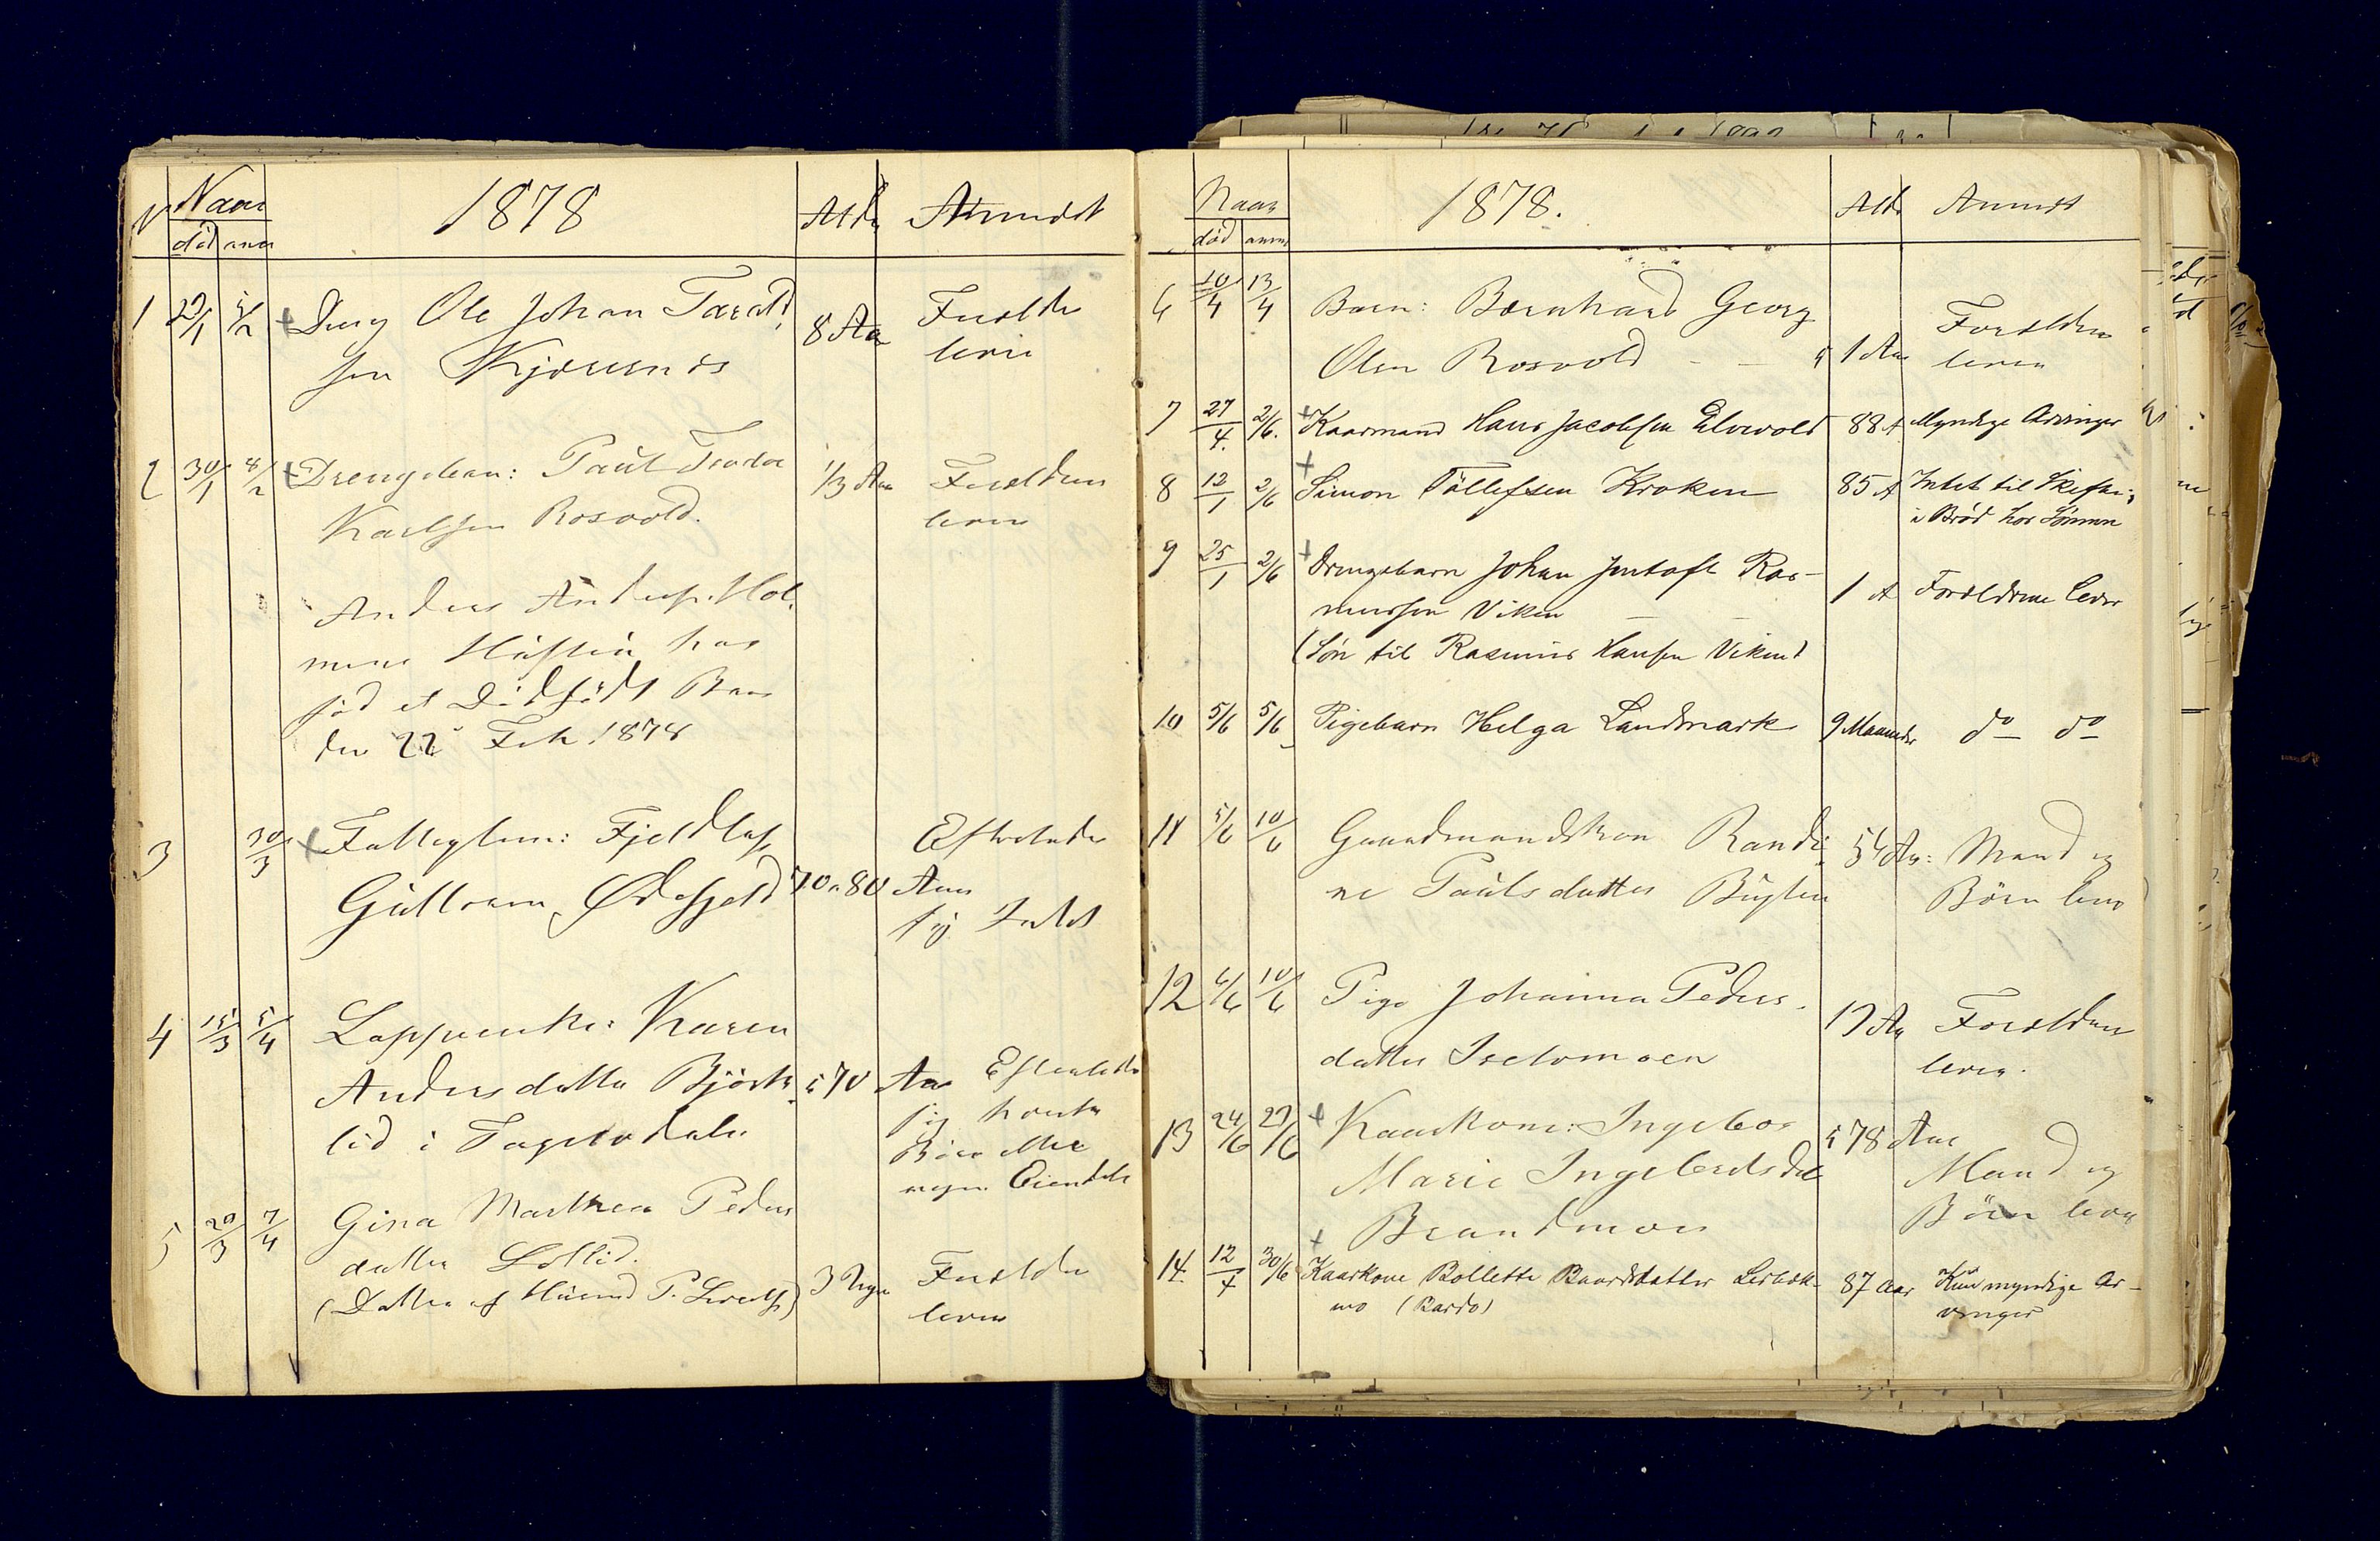 N Naar 1878 Alder Anmeldt
død anm
1 29/1 5/2 + Dreng Ole Johan Tarald
sen Kjørresnes 8 Aar Forældre
leve
2 30/1 8/2 + Drengebarn: Paul Teodor 1/3 Aar Forældrene
Karlsen Rosvold. leve
Anders Anders. Hol
mens Hustru har
fød et Dødfødt Barn
den 22 Feb 1878
3 30/3 + Fattiglem: Fjeldlap Efterlader
70 a 80 Aar
sig Intet
4 15/3 5/4 Karen
Andersdatter Bjørk 70 Aar Efterlader
lid i sig hverken
Børn eller
nogen Eiendele
5 20/3 7/4 Gina Marthea Peders
datter
(Datter af Husmd P. 3 Uger Forældre
leve
Naar 1878. Aldr Anmeldt
død anm
6 10/4 13/4 Barn: Bernhard Georg
Olsen Rosvold - - 1 Aar Forældrene
leve
7 27/4. 2/6. + Kaarmand Hans Jacobsen Elvevold 88 A Myndige Arvinger
8 12/1 2/6 + Simon Tollefsen Kroken 85 A Intet til Skifte;
i Brød hos Sønnen
9 25/1 2/6 + Drengebarn Johan Ras-
mussen Viken - - 1 A Forældrene lever
(Søn til Rasmus Hansen Viken)
10 5/6 5/6 Pigebarn Helga Landmark 9 Maaneder do do
11 5/6 10/6 Gaardmandskone Randi
ne Paulsdatter 54 Aar: Mand og
Børn leve
12 6/6 10/6 Pige Johanna Peders.
datter Iselvmoen 17 Aar Forældrene
leve.
13 24/6 27/6 + Kaarkone: Ingebor
Marie Ingebrigtsdtr 78 Aar
Brandmoen Mand og
Børn leve
14. 12/4 30/6 + Kaarkone Bollette Baardsdatter
mo (Bardo) 87 Aar Kun myndige Ar-
vinger